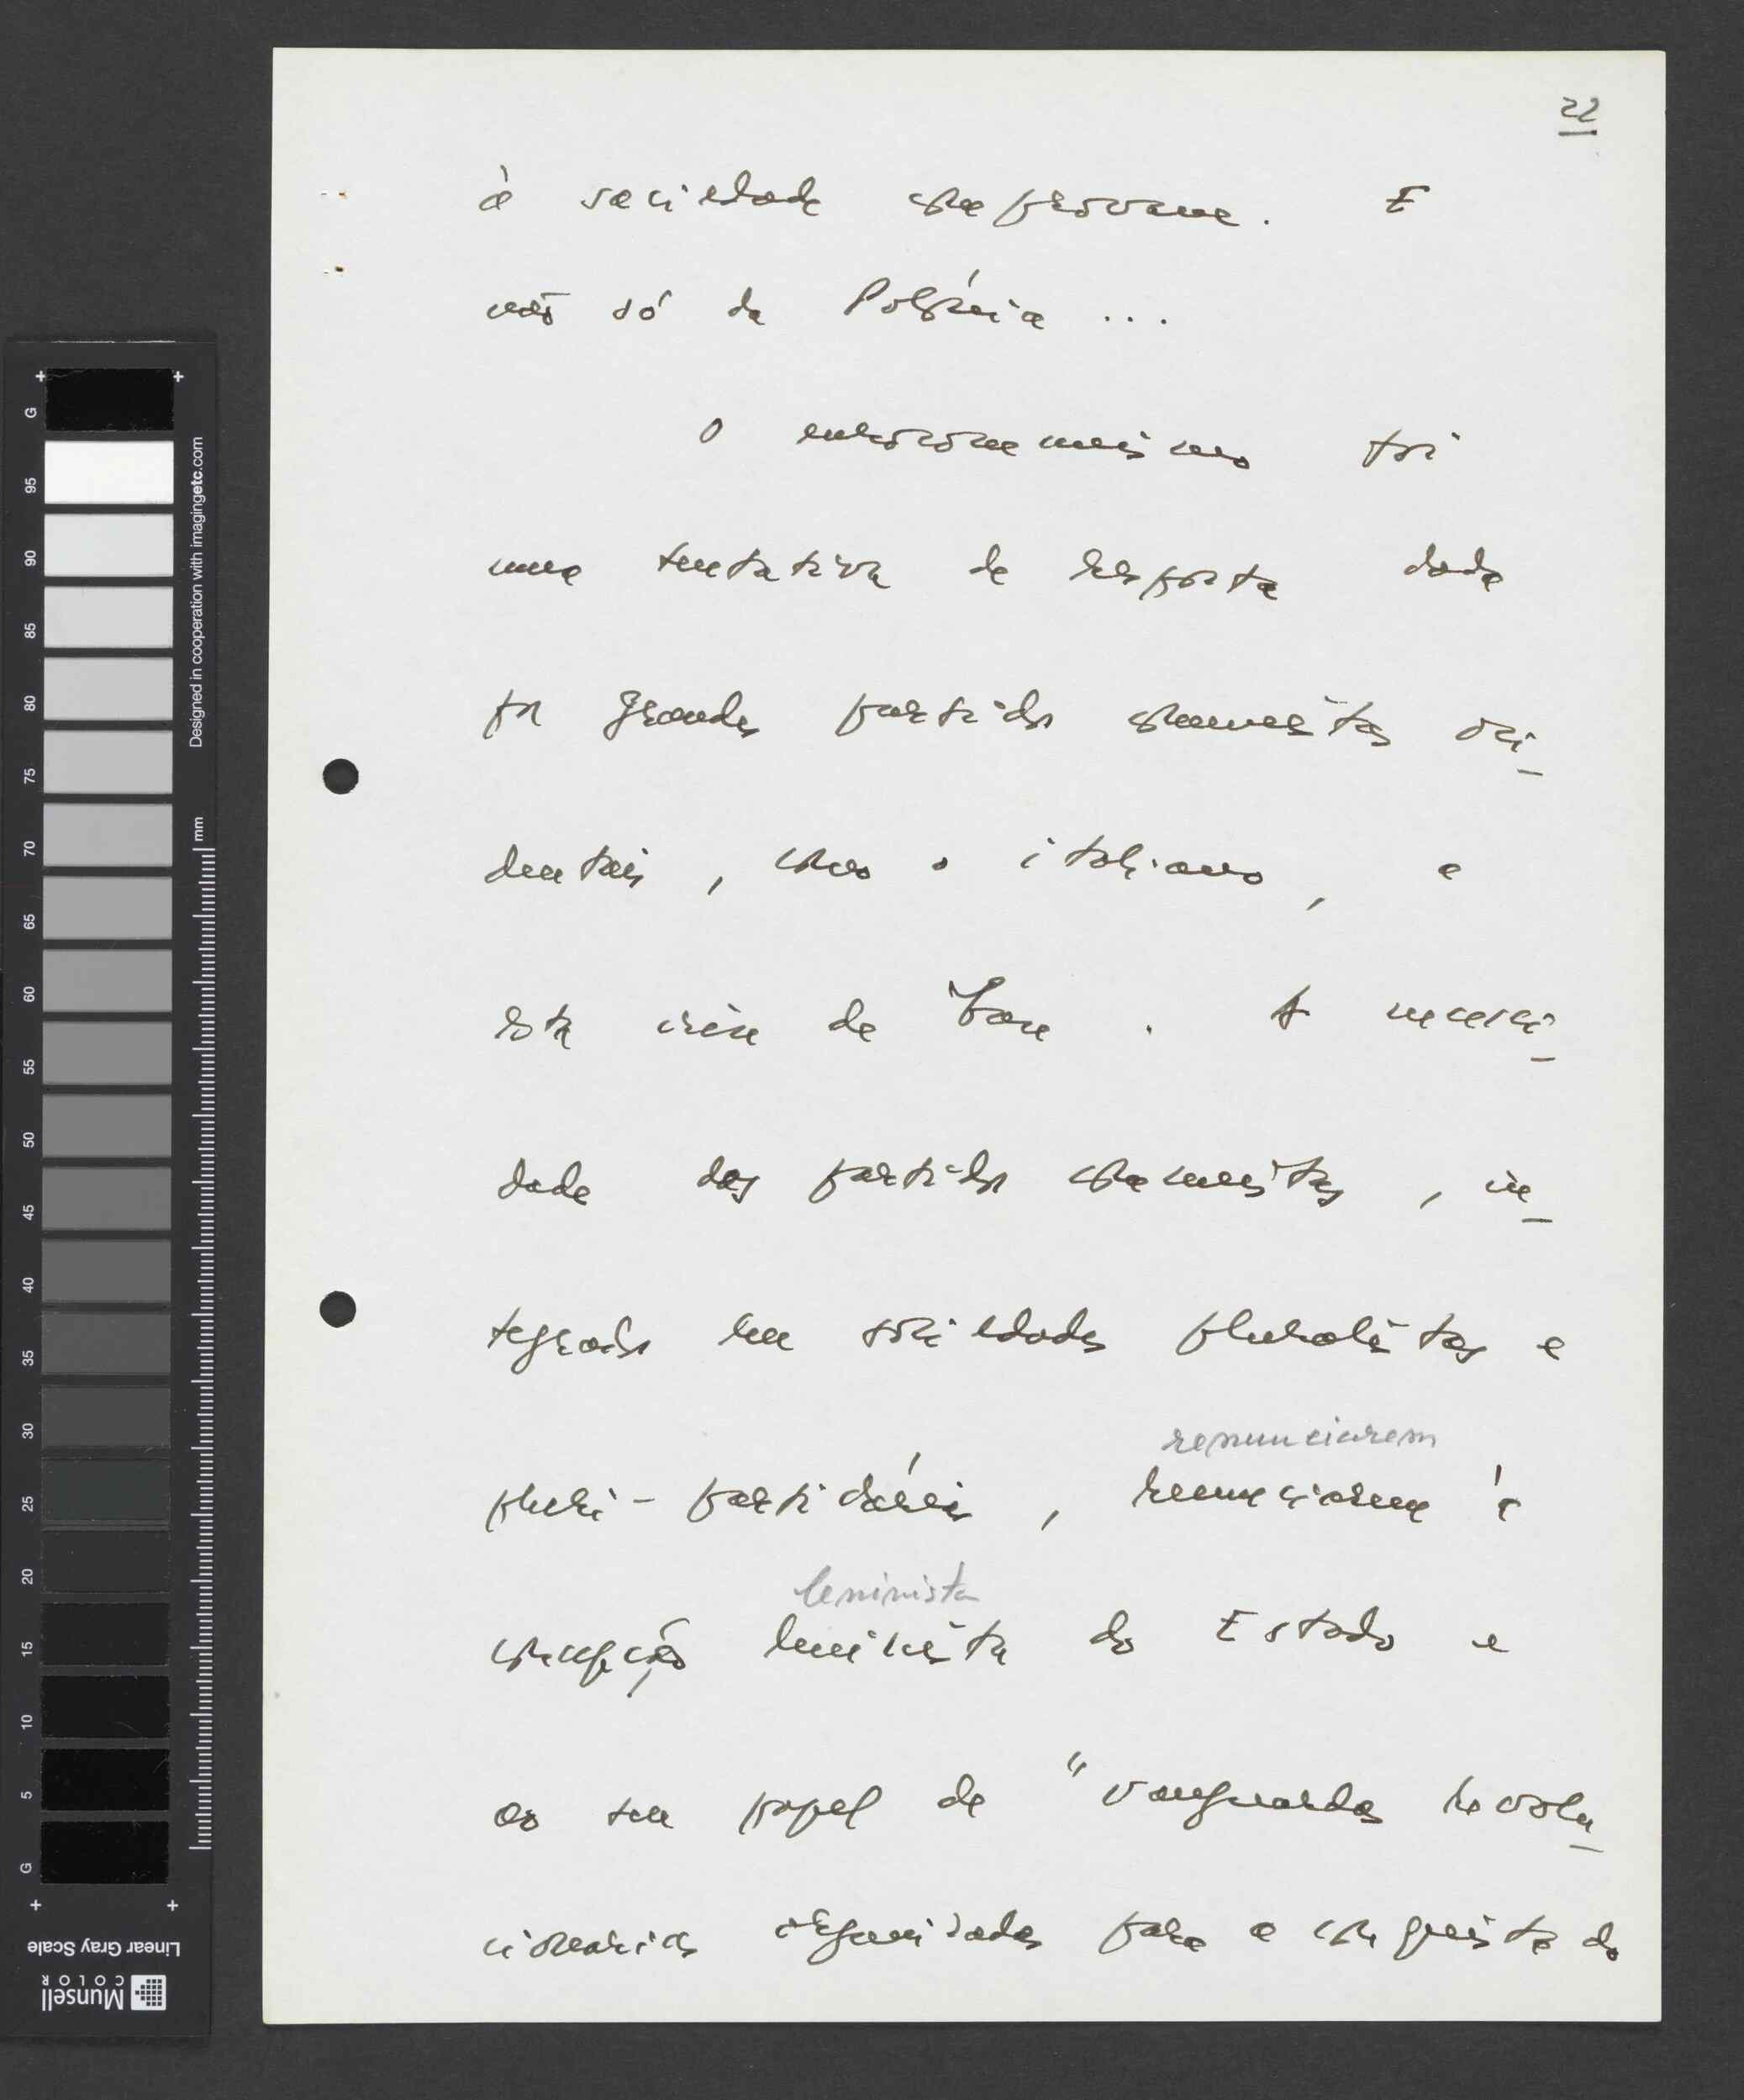 22
à sociedade contemporânea. E
não só da Polónia ...
O eurocomunismo foi
uma tentativa de resposta dada
por grandes partidos comunistas oci-
dentais, como o italiano, a
esta crise de fora. A necessi-
dade dos partidos comunistas, in-
tegrados em sociedades pluralistas e
renunciarem
pluri-partidárias, renunciarem à
leninista
concepção leninista do Estado e
ao seu papel de "vanguardas revolu-
cionárias organizadas para a conquista do
G
95
90
85
80
75
70
65
60
55
50
45
40
35
30
25
20
15
10
5
G
mm
Designed in cooperation with imagingetc.com
Linear Gray Scale
Munsell
COLOR